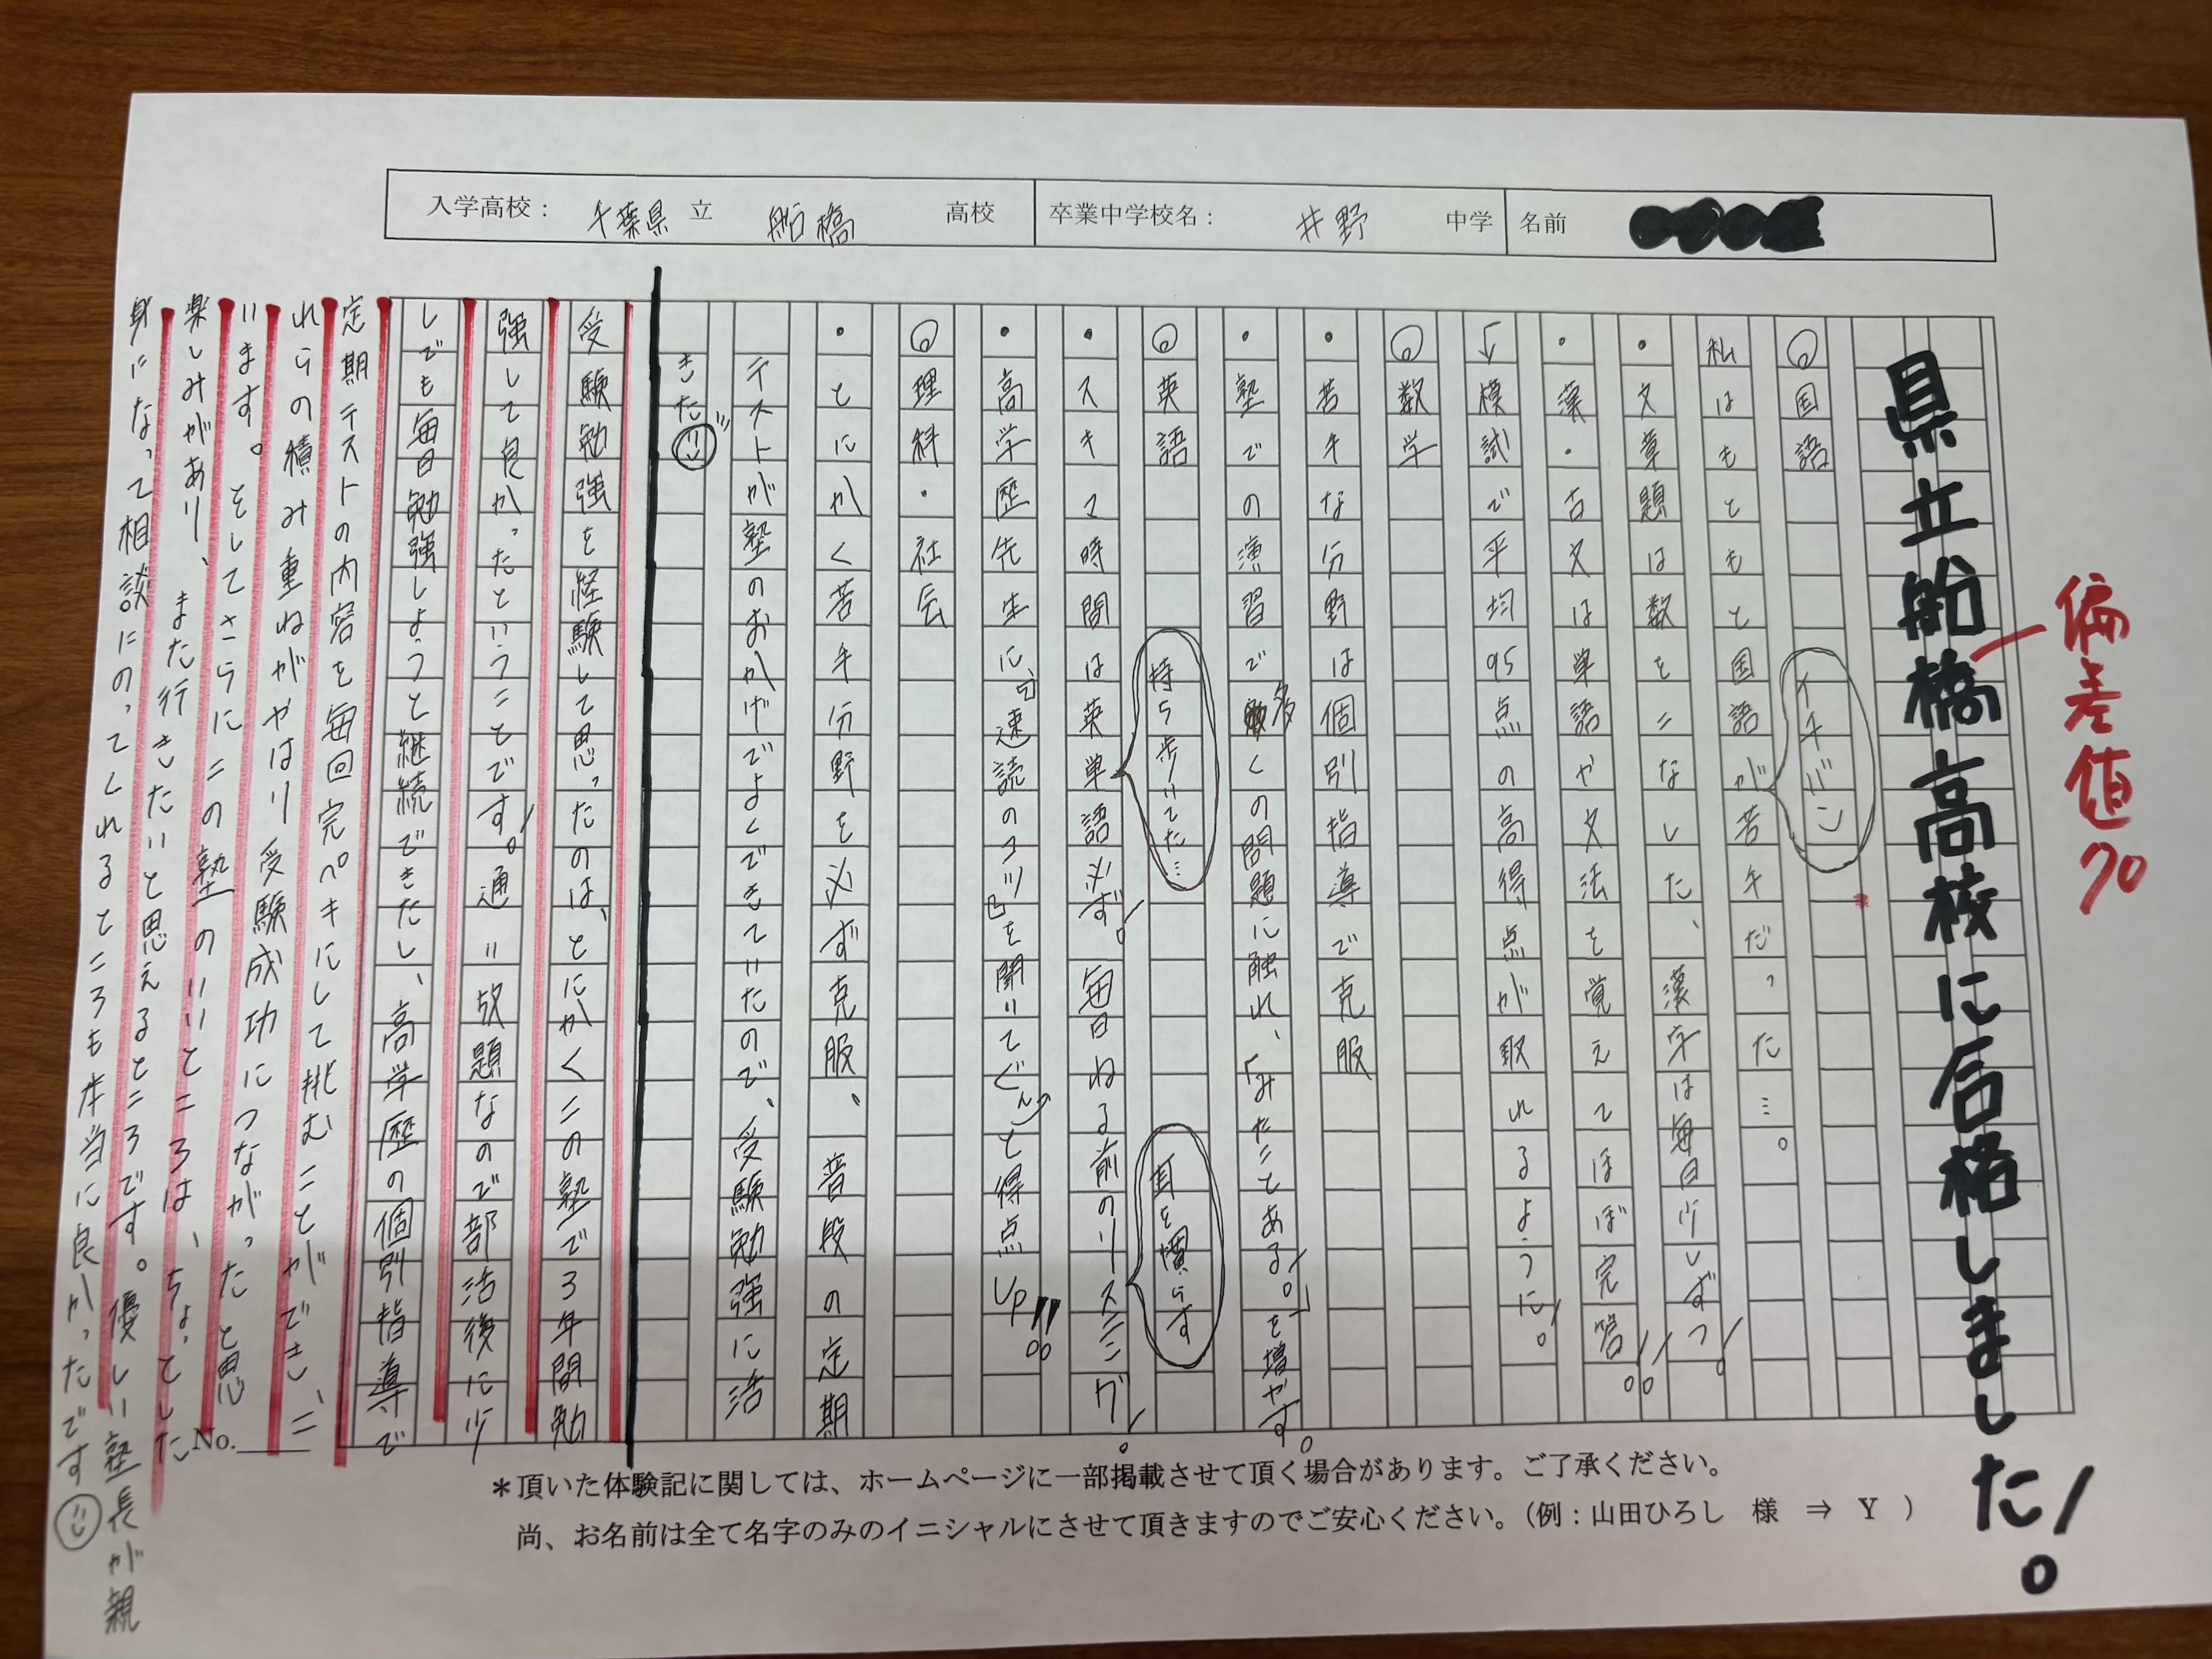 入学高校： 千葉県 立 船橋 高校 卒業中学校名： 井野 中学 名前
県立船橋高校に合格しました！
偏差値70
◎国語
イチバン
私はもともと国語が苦手だった…。
・文章題は数をこなした、漢字は毎日少しずつ！
・漢・古文は単語や文法を覚えてほぼ完答!!
↓模試で平均95点の高得点が取れるように！
◎数学
・苦手な分野は個別指導で克服
・塾での演習で多くの問題に触れ、「みたことある！」を増やす。
◎英語
持ち歩いてた…
耳を慣らす
・スキマ時間は英単語必ず！毎日ねる前のリスニング！
・高学歴先生に、“速読のコツ”を聞いてぐーんと得点UP!!
◎理科・社会
・とにかく苦手分野を必ず克服、普段の定期
テストが塾のおかげでよくできていたので、受験勉強に活
きた
受験勉強を経験して思ったのは、とにかくこの塾で3年間勉
強して良かったということです！通い放題なので部活後に少
しでも毎日勉強しようと継続できたし、高学歴の個別指導で
定期テストの内容を毎回完ペキにして挑むことができ、こ
れらの積み重ねがやはり受験成功につながったと思
います。そしてさらにこの塾のいいところは、ちょっとした
楽しみがあり、また行きたいと思えるところです。優しい塾長が親
身になって相談にのってくれるところも本当に良かったです
No.
＊頂いた体験記に関しては、ホームページに一部掲載させて頂く場合があります。ご了承ください。
尚、お名前は全て名字のみのイニシャルにさせて頂きますのでご安心ください。（例：山田ひろし 様 ⇒ Y ）